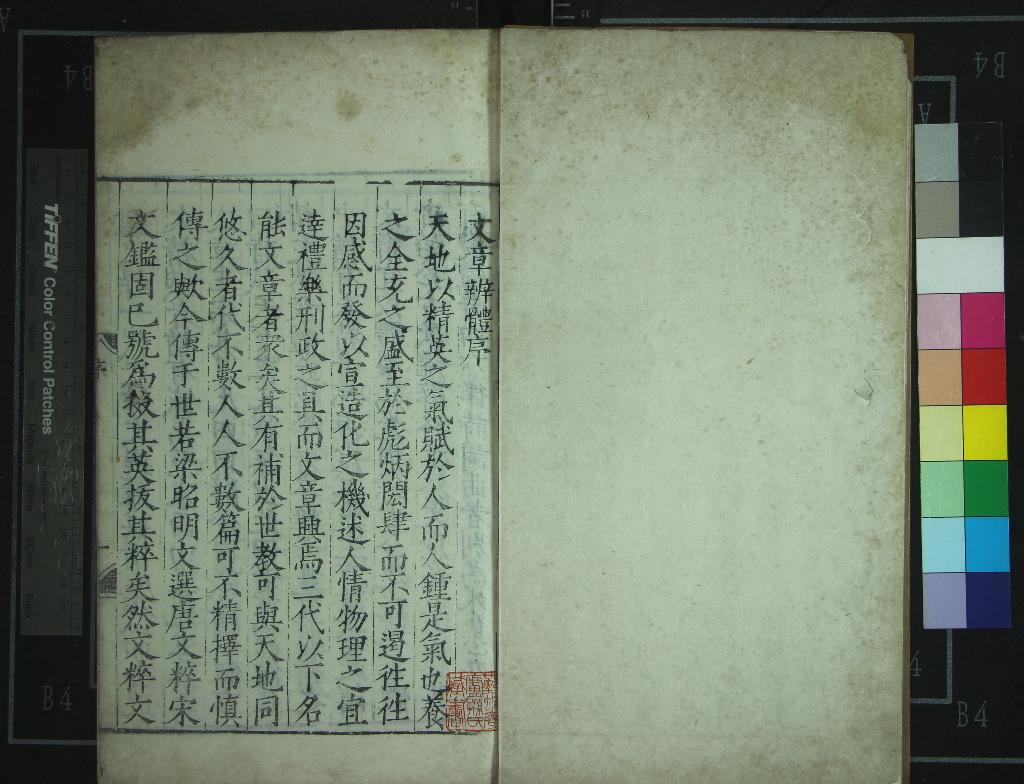 文章辨體序
天地以精英之氣賦於人而人鍾是氣也養
之全充之盛至於彪炳閎肆而不可遏徃徃
因感而發以宣造化之機述人情物理之宜
達禮樂刑政之具而文章興焉三代以下名
能文章者衆矣其有補於世教可與天地同
悠久者代不數人人不數篇可不精擇而慎
傳之歟今傳于世若梁昭明文選唐文粹宋
文鑑固已號為掇其英拔其粹矣然文粹文
序
一
TIFFEN Color Control Patches
B4
B4
B4
B4
A